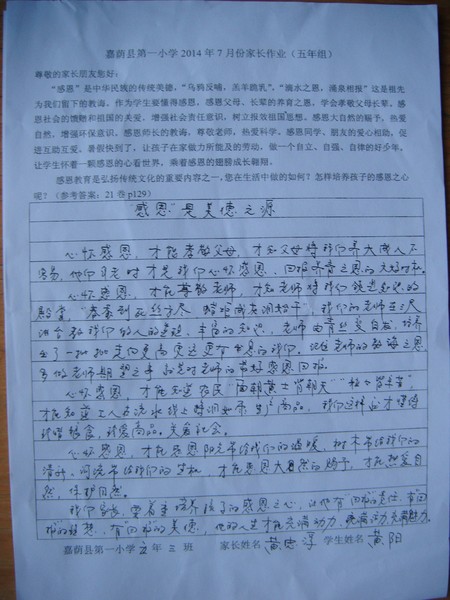 嘉荫县第一小学 2014 年 7 月份家长作业（五年组）
尊敬的家长朋友您好：
“感恩”是中华民族的传统美德，“乌鸦反哺，羔羊跪乳”，“滴水之恩，涌泉相报”这是祖先
为我们留下的教诲，作为学生要懂得感恩，感恩父母、长辈的养育之恩，学会孝敬父母长辈。感
恩社会的馈赠和祖国的关爱，增强社会责任意识，树立报效祖国思想。感恩大自然的赐予，热爱
自然，增强环保意识。感恩师长的教诲，尊敬老师，热爱科学。感恩同学、朋友的爱心相助，促
进互助互爱。暑假快到了，让孩子在家做力所能及的劳动，做一个自立、自强、自律的好少年。
让学生怀着一颗感恩的心看世界，乘着感恩的翅膀成长翱翔。
感恩教育是弘扬传统文化的重要内容之一，您在生活中做的如何？怎样培养孩子的感恩之心
呢？（参考答案：21 卷 p129）
“感恩”是美德之源
心怀感恩，才能孝敬父母，才知父母将我们养大成人不
容易，他们年老时才是我们心怀感恩、回报养育之恩的
心怀感恩，才能尊敬老师，才知老师将我们领进知识的
殿堂，“春蚕到死丝方尽，蜡炬成灰泪始干”，我们的老师在三尺
讲台教我们做人的 丰富的知识，老师由青丝变白发，培养
出了一批批走向更高更远更有出息的我们，
老师期望之中 老师的最好感恩回报。
心怀感恩，才能知道农民“面朝黄土背朝天”
才能知道工人在流水线上 生产商品，我们这样才懂得
珍惜粮食，珍爱商品。关爱社会。
心怀感恩，才能感恩阳光带给我们的温暖，树木带给我们的
河流带给我们的 才能感恩大自然的赐予，才能热爱自
然，保护自然。
我们家长，要着重培养孩子的感恩之心，让他有回报的责任，有回
报的 有回报的美德，他的人生才能充满动力，充满活力，充满魅力。
嘉荫县第一小学 五 年 三 班 家长姓名 黄忠淳 学生姓名 黄阳